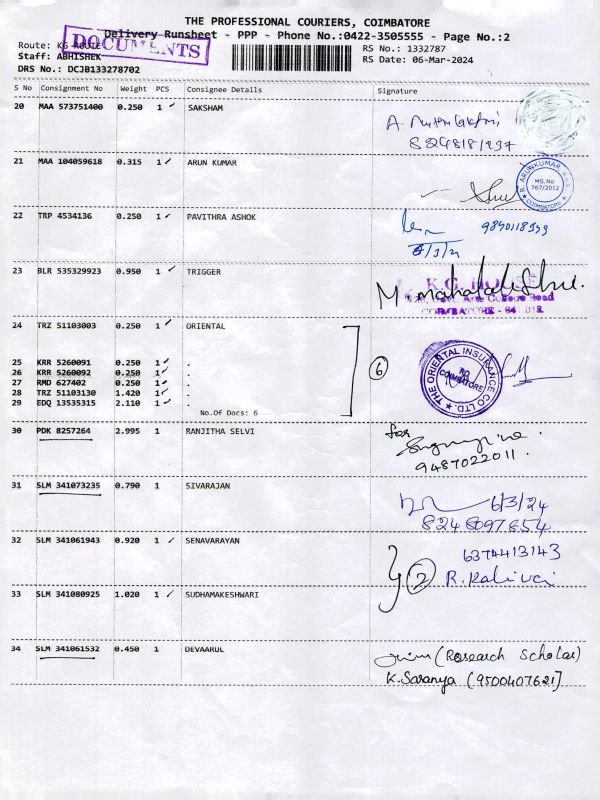 THE PROFESSIONAL COURIERS, COIMBATORE
Delivery Runsheet - PPP - Phone No.:0422-3505555 - Page No.:2
Route: KG ROUTE
DOCUMENTS
RS No.: 1332787
Staff: ABHISHEK
RS Date: 06-Mar-2024
DRS No.: DCJB133278702
S No Consignment No Weight PCS Consignee Details Signature
20 MAA 573751400 0.250 1 SAKSHAM
8248181237
21 MAA 104059618 0.315 1 ARUN KUMAR
R. ARUNKUMAR
MS.No
767/2012
COIMBATORE
22 TRP 4534136 0.250 1 PAVITHRA ASHOK
9840118349
6/3/24
23 BLR 535329923 0.950 1 TRIGGER
M mahalakshmi.
24 TRZ 51103003 0.250 1 ORIENTAL
25 KRR 5260091 0.250 1 .
26 KRR 5260092 0.250 1 .
27 RMD 627402 0.250 1 .
28 TRZ 51103130 1.420 1 .
29 EDQ 13535315 2.110 1 .
No.Of Docs: 6
6
THE ORIENTAL INSURANCE CO LTD.
COIMBATORE
30 PDK 8257264 2.995 1 RANJITHA SELVI
for
9487022011.
31 SLM 341073235 0.790 1 SIVARAJAN
6/3/24
32 SLM 341061943 0.920 1 SENAVARAYAN
6374413143
2
33 SLM 341080925 1.020 1 SUDHAMAKESHWARI
34 SLM 341061532 0.450 1 DEVAARUL
(Research Scholar)
K. Saranya (9500407621)